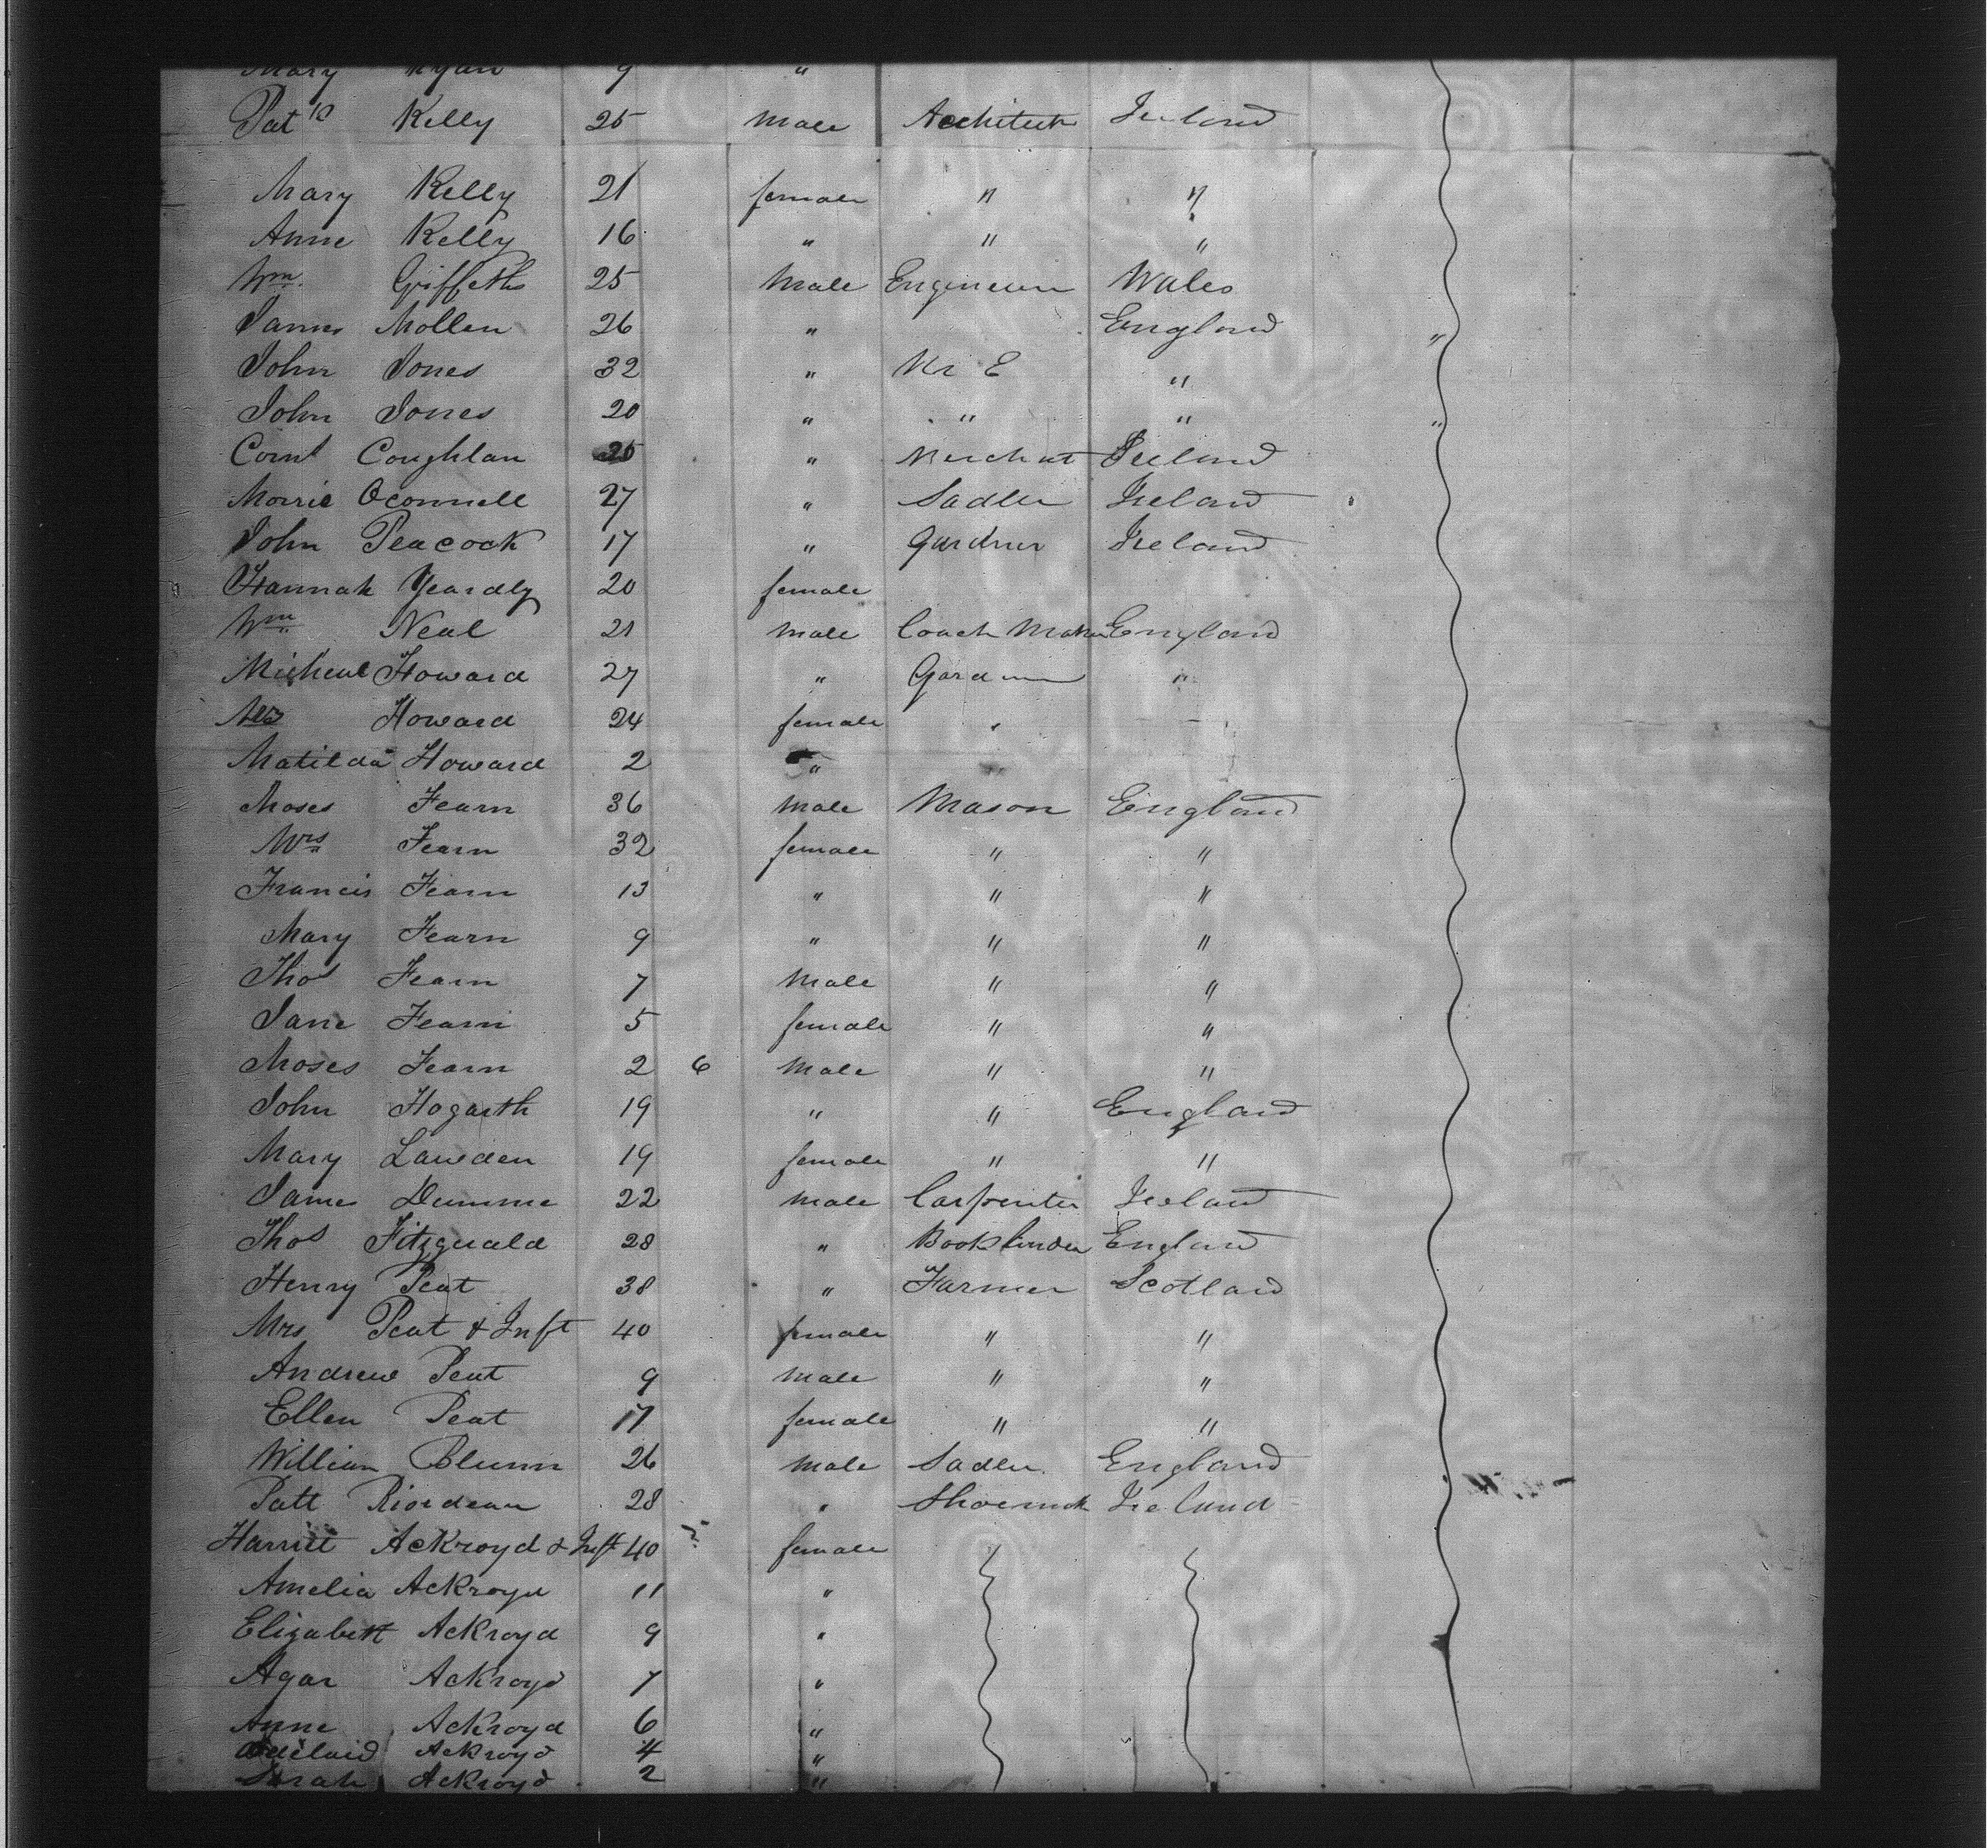 Mary Ryan 9 "
Patk Kelly 25 Male Architect Ireland
Mary Kelly 21 female " "
Anne Kelly 16 " " "
Wm. Griffeth 25 Male Engineer Wales
James Mollen 26 " England "
John Jones 32 " "
John Jones 20 " " " "
Cornl Coughlan 25 " Merchat Ireland
Morris Oconnell 27 " Sadler Ireland
John Peacock 17 " Gardner Ireland
Hannah Yeardly 20 female
Wm Neal 21 Male Coach Maker England
Micheal Howard 27 " Gardner "
Howard 24 female "
Matilda Howard 2 "
Moses Fearn 36 Male Mason England
Mrs Fearn 32 female " "
Francis Fearn 13 " " "
Mary Fearn 9 " " "
Thos Fearn 7 Male " "
Jane Fearn 5 female " "
Moses Fearn 2 6 Male " "
John Hogarth 19 " " England
Mary 19 female " "
James 22 Male Carpenter Ireland
Thos Fitzgerald 28 " Bookbinder England
Henry Peat 38 " Farmer Scotland
Mrs Peat & Inft 40 female " "
Andrew Peat 9 Male " "
Ellen Peat 17 female " "
William Blunn 26 Male Sadler England
Patt Riordean 28 " Shoemak Ireland
Harriet Ackroyd & Inft 40 female
Amelia Ackroyd 11 "
Elizabeth Ackroyd 9 "
Agar Ackroyd 7 "
Anne Ackroyd 6 "
Adelaid Ackroyd 4 "
Sarah Ackroyd 2 "